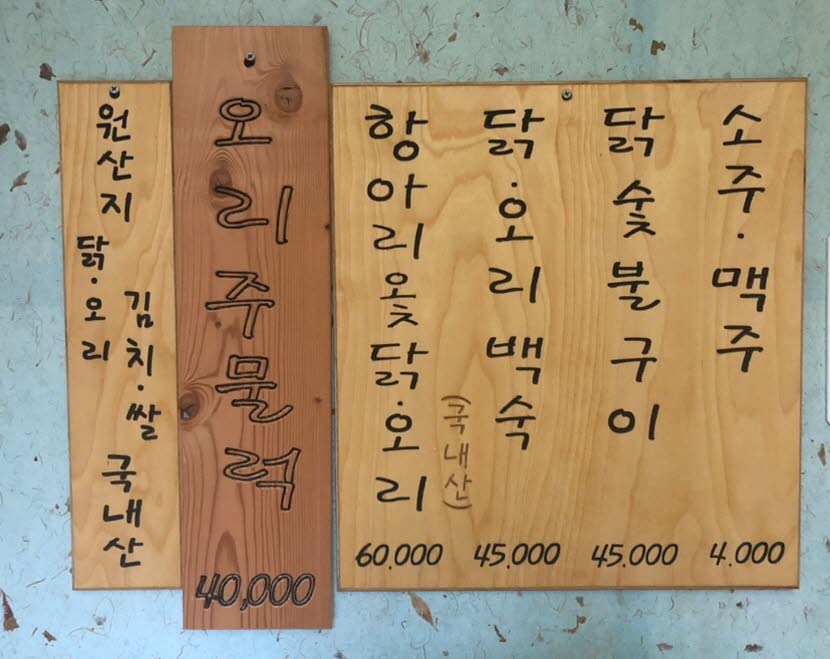 원산지
닭·오리
김치·쌀
국내산
오리주물럭
40,000
항아리옻닭·오리
60.000
(국내산)
닭·오리백숙
45.000
닭숯불구이
45.000
소주·맥주
4.000